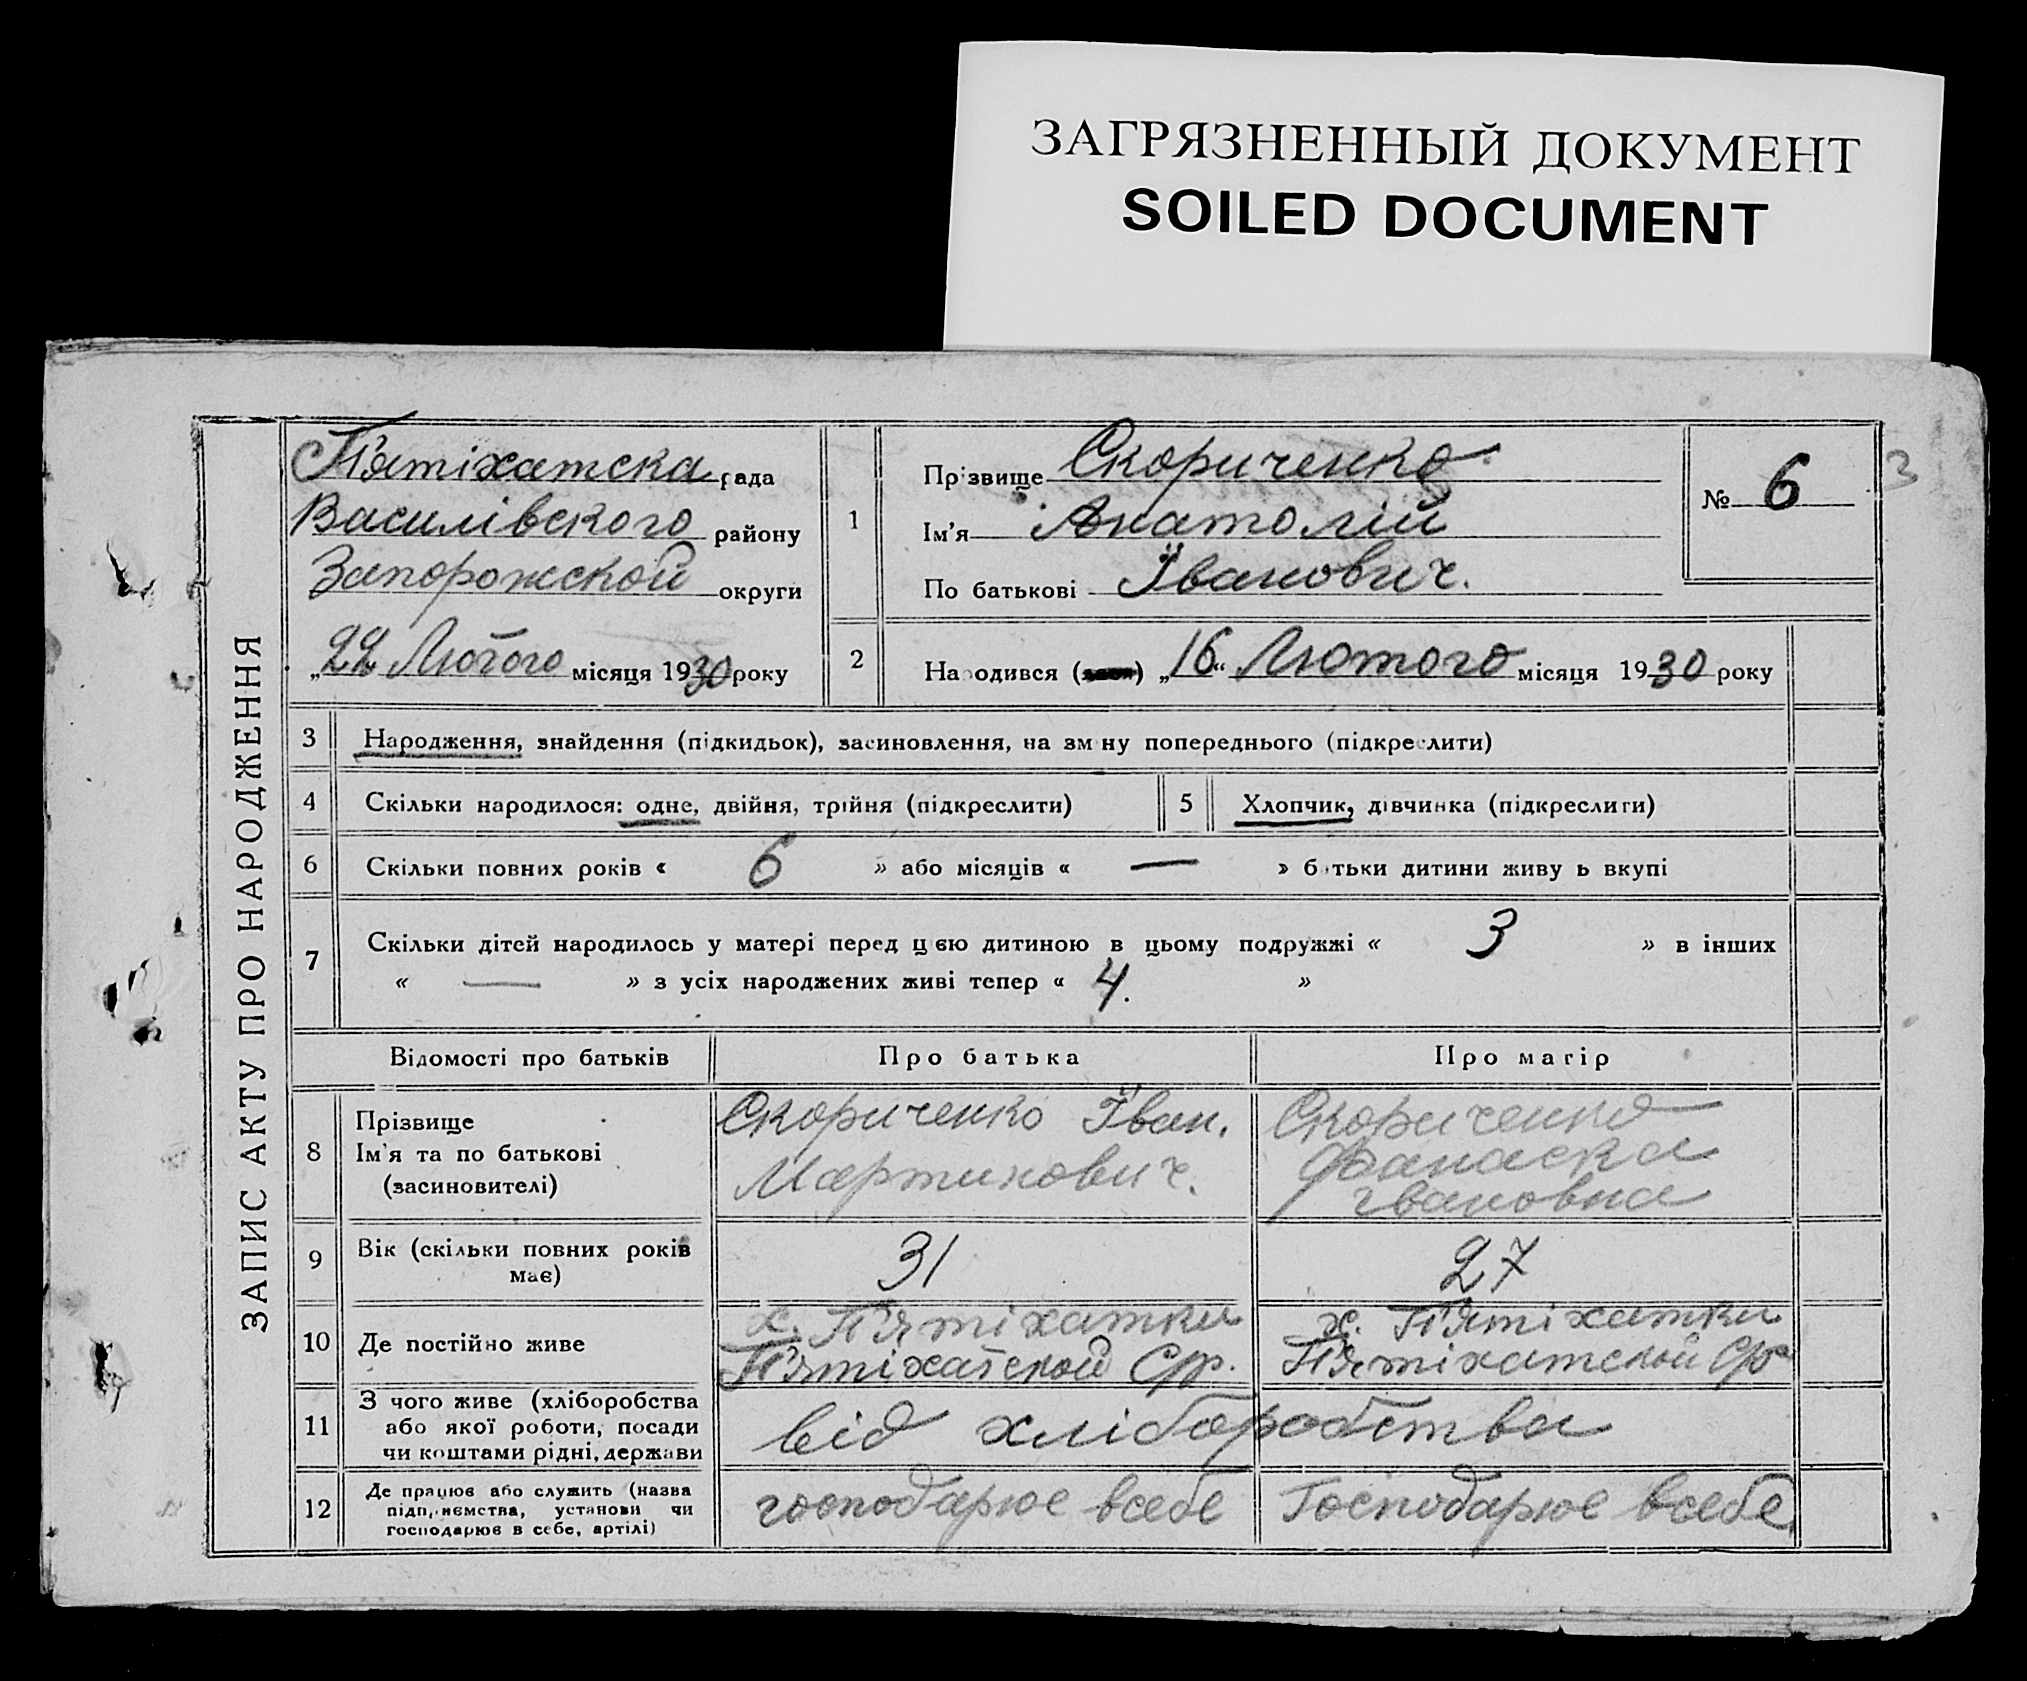 ЗАГРЯЗНЕННЫЙ ДОКУМЕНТ
SOILED DOCUMENT
ЗАПИС АКТУ ПРО НАРОДЖЕННЯ
П'ятіхатска рада
Василівского району
Запорожской округи
„22 Лютого місяця 1930 року
1
Прізвище Скориченко
Ім'я Анатолій
По батькові Іванович.
№ 6
3
2
Народився ( ) „16“ Лютого місяця 1930 року
3 Народження, знайдення (підкидьок), засиновлення, на зміну попереднього (підкреслити)
4 Скільки народилося: одне, двійня, трійня (підкреслити) 5 Хлопчик, дівчинка (підкреслити)
6 Скільки повних років « 6 » або місяців « — » батьки дитини живуть вкупі
7 Скільки дітей народилось у матері перед цією дитиною в цьому подружжі « 3 » в інших
« — » з усіх народжених живі тепер « 4. »
Відомості про батьків Про батька Про матір
8
Прізвище
Ім'я та по батькові
(засиновителі)
Скориченко Іван.
Мартинович.
Скориченко
Івановна
9 Вік (скільки повних років
має)
31
27
10 Де постійно живе
х. П'ятіхатки
П'ятіхатской Ср.
х. П'ятіхатки
П'ятіхатской Ср
11 З чого живе (хліборобства
або якої роботи, посади
чи коштами рідні, держави
від хліборобства
12 Де працює або служить (назва
підприємства, установи чи
господарює в себе, артілі)
господарює всебе
Господарює всебе